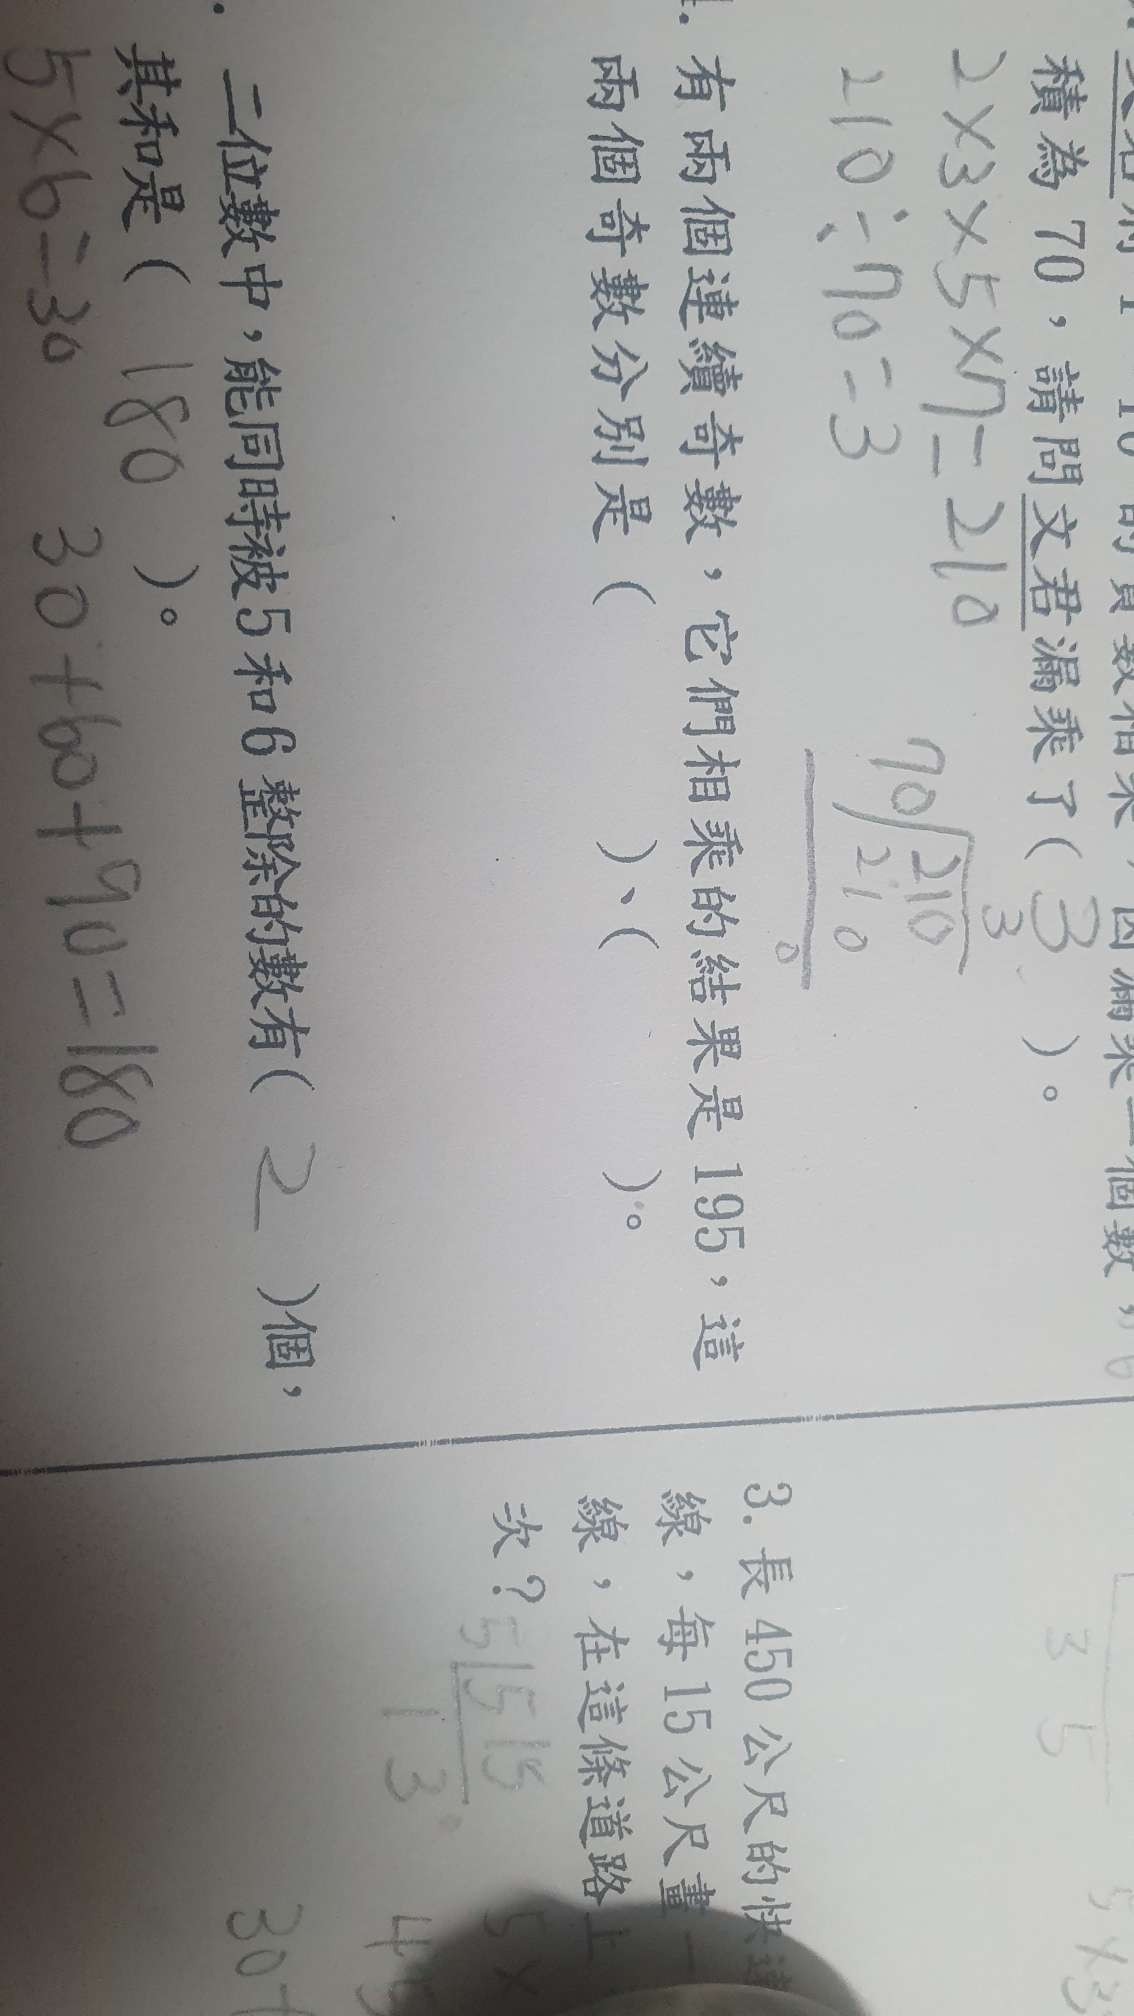 積為 70，請問文君漏乘了( 3 )。
2×3×5×7=210
210÷70=3
3
70 210
210
0
有兩個連續奇數，它們相乘的結果是 195，這
兩個奇數分別是( )、( )。
二位數中，能同時被5和6整除的數有( 2 )個，
其和是( 180 )。
5×6=30 30+60+90=180
3 5
3. 長 450 公尺的快
線，每 15 公尺畫一
線，在這條道路上
次？
5 5 15
1 3